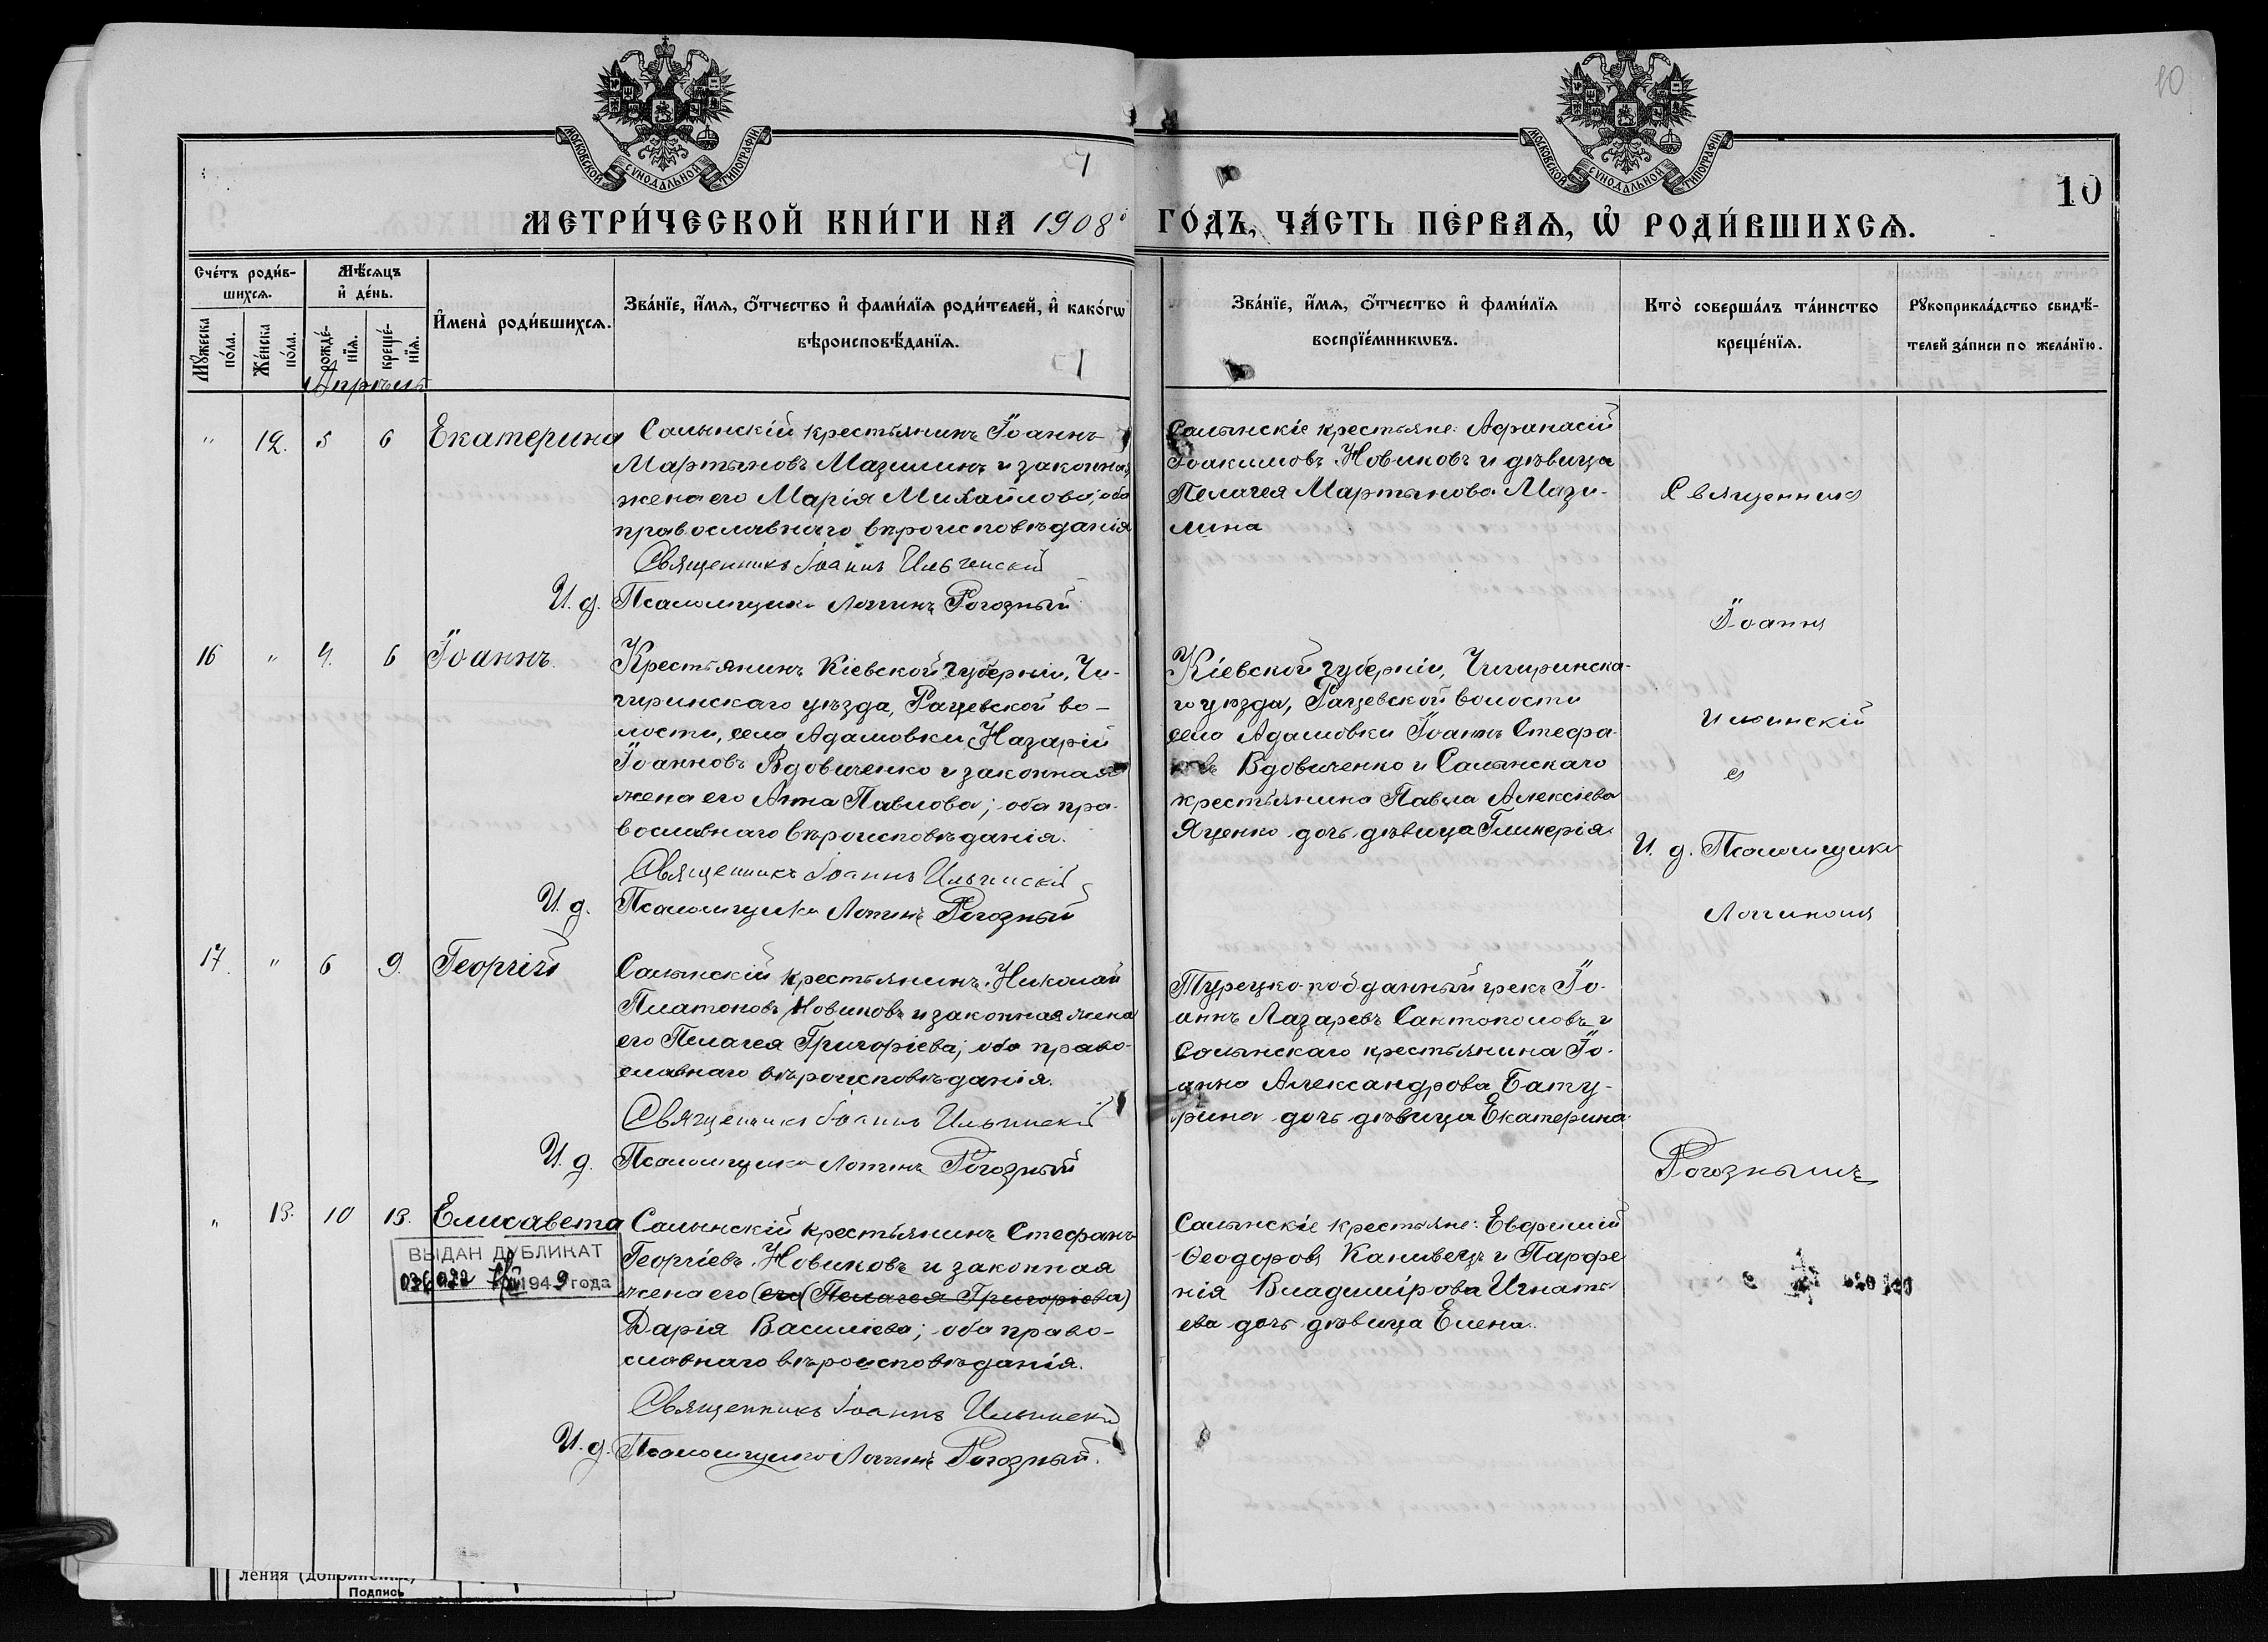 10
МОСКОВСКОЙ СѴНОДАЛЬНОЙ ТИПОГРАФІИ
МОСКОВСКОЙ СѴНОДАЛЬНОЙ ТИПОГРАФІИ
10
МЕТРИ́ЧЕСКОЙ КНИ́ГИ НА 1908 ГО́ДЪ, ЧА́СТЬ ПЕ́РВАѦ, Ѡ҆ РОДИ́ВШИХСѦ.
Сче́тъ роди́в-
шихсѧ.
Мꙋ́жеска
по́ла.
Же́нска
по́ла.
Мѣ́сѧцъ
и҆ де́нь.
рожде́-
нїѧ.
креще́-
нїѧ.
И҆мена̀ роди́вшихсѧ.
Зва́нїе, и҆́мѧ, ѻ҆́тчество и҆ фами́лїѧ роди́телей, и҆ како́гѡ
вѣроисповѣ́данїѧ.
Зва́нїе, и҆́мѧ, ѻ҆́тчество и҆ фами́лїѧ
воспрїе́мникѡвъ.
Кто̀ соверша́лъ та́инство
креще́нїѧ.
Рꙋкоприкла́дство свидѣ́-
телей за́писи по жела́нїю.
Апрѣль
" 12. 5 6 Екатерина
Салынскій крестьянинъ Іоаннъ
Мартыновъ Мазилинъ и законная
жена его Марія Михайлова; оба
православнаго вѣроисповѣданія
Священникъ Іоаннъ Ильинскій
И. д. Псаломщика Логинъ Рогозный
Салынскіе крестьяне: Афанасій
Іоакимовъ Новиковъ и дѣвица
Пелагея Мартынова Мази-
лина
16 " 4. 6 Іоаннъ.
Крестьянинъ Кіевской губерніи, Чи-
гиринскаго уѣзда, Рацевской во-
лости, села Адамовки Назарій
Іоанновъ Вдовиченко и законная
жена его Анна Павлова; оба пра-
вославнаго вѣроисповѣданія.
Священникъ Іоаннъ Ильинскій
И. д. Псаломщика Логинъ Рогозный
Кіевской губерніи, Чигиринска-
го уѣзда, Рацевской волости
села Адамовки Іоаннъ Стефа-
въ Вдовиченко и Салынскаго
крестьянина Павла Алексіева
Яценко дочь дѣвица Гликерія.
17. " 6 9. Георгій
Салынскій крестьянинъ Николай
Платоновъ Новиковъ и законная жена
его Пелагея Григоріева; оба право-
славнаго вѣроисповѣданія.
Священникъ Іоаннъ Ильинскій
И. д. Псаломщика Логинъ Рогозный
Турецко-подданный грекъ Іо-
аннъ Лазаревъ Сантополовъ и
Салынскаго крестьянина Іо-
анна Александрова Бату-
рина дочь дѣвица Екатерина.
" 13. 10 13. Елисавета
Салынскій крестьянинъ Стефанъ
Георгіевъ Новиковъ и законная
жена его (его (Пелагея Григоріева)
Дарія Василіева; оба право-
славнаго вѣроисповѣданія.
Священникъ Іоаннъ Ильинскій
И. д. Псаломщика Логинъ Рогозный.
Салынскіе крестьяне: Евфимій
Ѳеодоровъ Канивецъ и Парфе
нія Владимірова Игнать-
ева дочь дѣвица Елена.
Священникъ
Іоаннъ
Ильинскій
съ
И. д. Псаломщика
Логиномъ
Рогознымъ
ВЫДАН ДУБЛИКАТ
1949 года
ления
Подпись